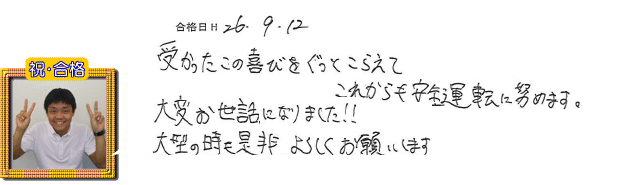 合格日H 26.9.12
祝・合格
受かったこの喜びをぐっとこらえて
これからも安全運転に努めます。
大変お世話になりました!!
大型の時も是非 よろしくお願いします